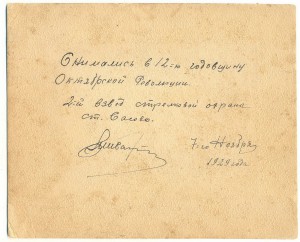 Снимались в 12-ю годовщину
Октябрской Революции.
2-й взвод стрелковой охраны
ст. Сасово.
7го Ноября
1929 года